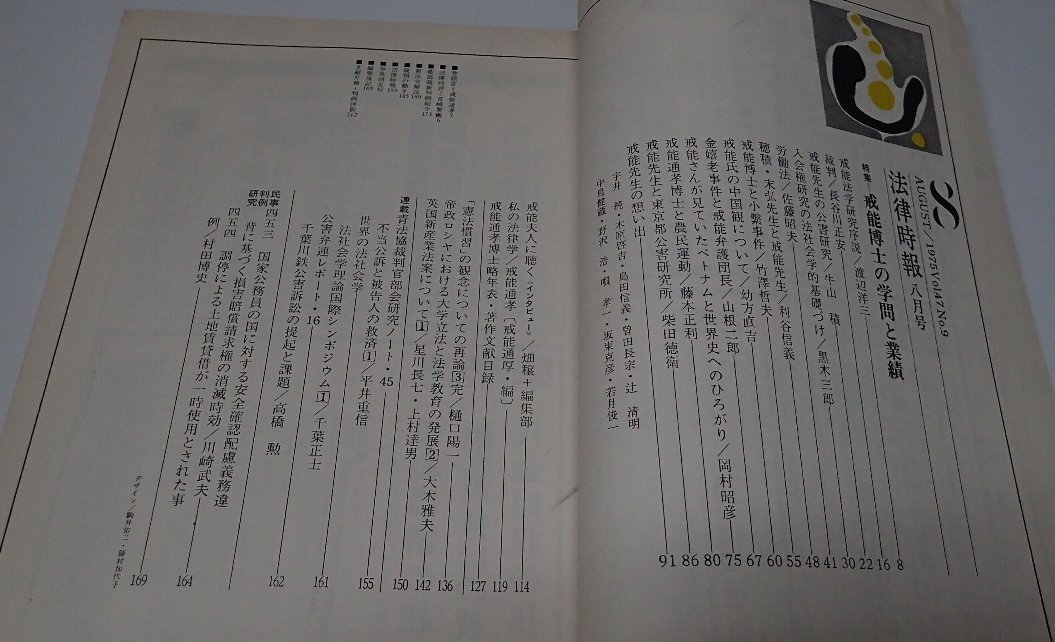 8
AUGUST/1975 Vol.47 No.9
法律時報 八月号
特集―戒能博士の学問と業績
戒能法学研究序説/渡辺洋三 8
裁判/長谷川正安 16
戒能先生の公害研究/牛山 積 22
入会権研究の法社会学的基礎づけ/黒木三郎 30
労働法/佐藤昭夫 41
穂積・末弘先生と戒能先生/利谷信義 48
戒能博士と小繋事件/竹澤哲夫 55
戒能氏の中国観について/幼方直吉 60
金嬉老事件と戒能弁護団長/山根二郎 67
戒能さんが見ていたベトナムと世界史へのひろがり/岡村昭彦 75
戒能通孝博士と農民運動/藤本正利 80
戒能先生と東京都公害研究所/柴田徳衛 86
戒能先生の想い出 91
宇井 純・木原啓吉・島田信義・曽田長宗・辻 清明
中島健蔵・野沢 浩・唄 孝一・坂東克彦・若月俊一
戒能夫人に聴く〈インタビュー〉/畑穣+編集部 114
私の法律学/戒能通孝〔戒能通厚・編〕 119
戒能通孝博士略年表・著作文献目録 127
「憲法慣習」の観念についての再論[3]完/樋口陽一 136
帝政ロシヤにおける大学立法と法学教育の発展[2]/大木雅夫 142
英国新産業法案について[1]/星川長七・上村達男 150
連載
青法協裁判官部会研究ノート・45
不当公訴と被告人の救済[1]/平井重信 155
世界の法社会学
法社会学理論国際シンポジウム[1]/千葉正士 161
公害弁連レポート・16
千葉川鉄公害訴訟の提起と課題/高橋 勲 162
民事判例研究
四五三 国家公務員の国に対する安全確認配慮義務違
背に基づく損害賠償請求権の消滅時効/川崎武夫 164
四五四 調停による土地賃貸借が一時使用とされた事
例/村田博史 169
■巻頭言=戒能通孝
■法律時評=宮崎繁樹 6
■最高裁新判例紹介 173
■新法令解説 190
■裁判の動き 185
■法律時報 199
■学界消息 47
■編集後記 169
■文献月報・判例評釈 212
デザイン/駒井佑二・藤村加代子